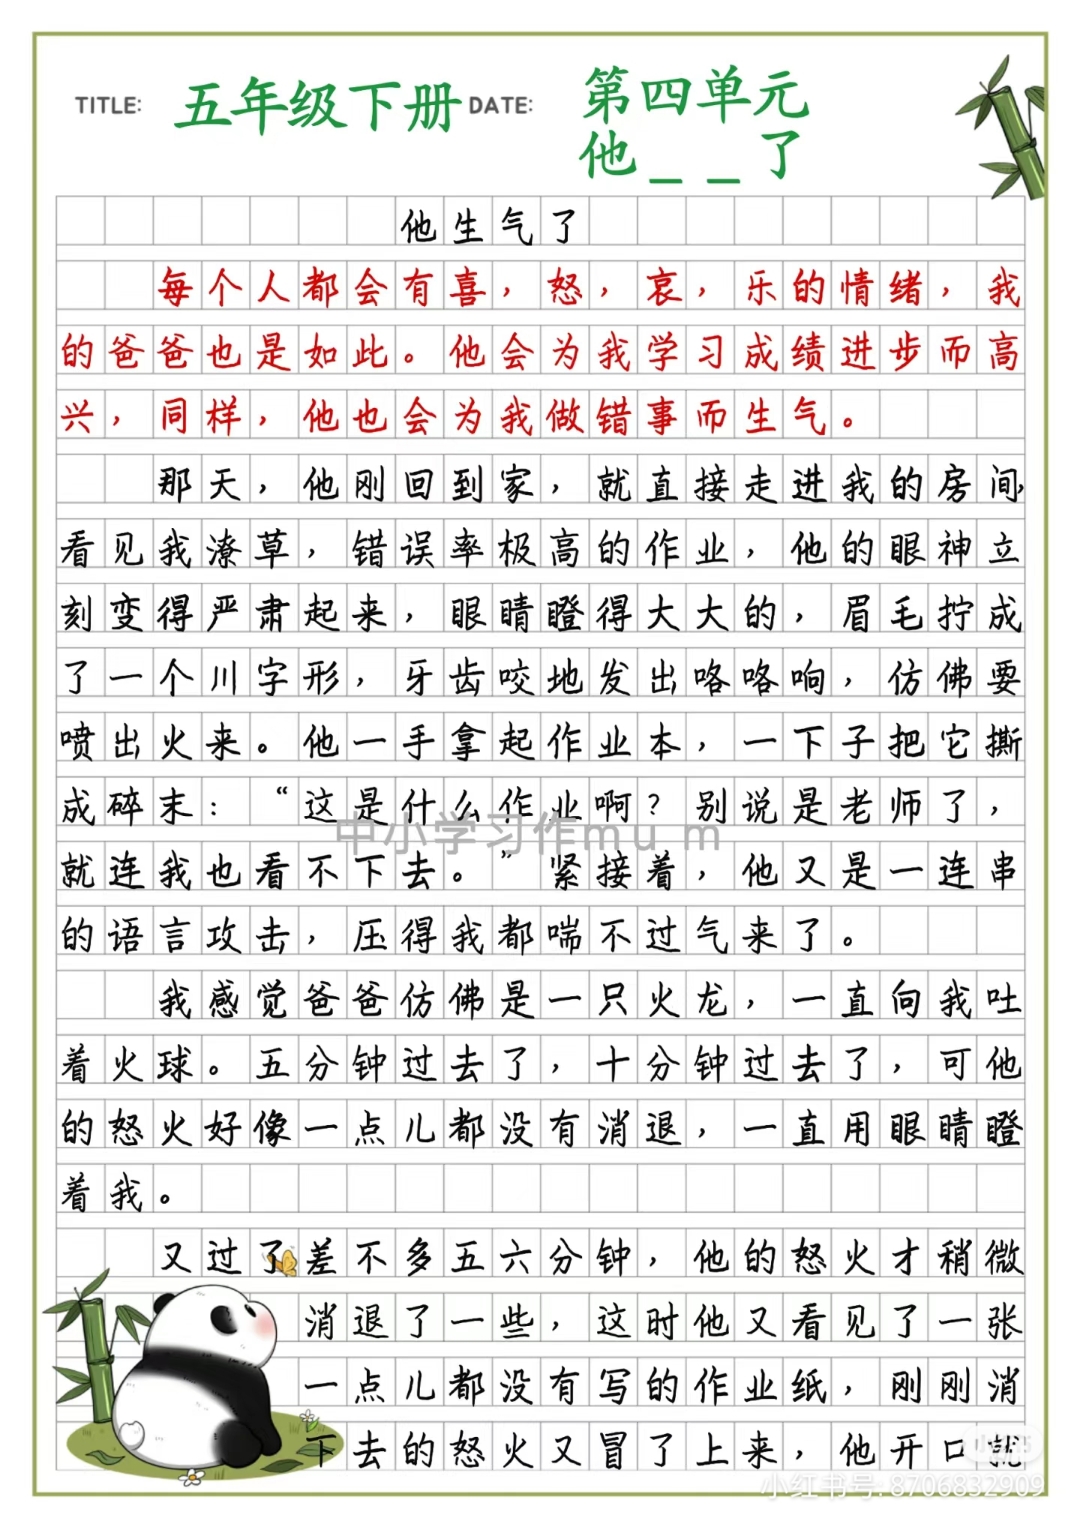 TITLE: 五年级下册 DATE: 第四单元
他_ _了
他生气了
每个人都会有喜，怒，哀，乐的情绪，我
的爸爸也是如此。他会为我学习成绩进步而高
兴，同样，他也会为我做错事而生气。
那天，他刚回到家，就直接走进我的房间，
看见我潦草，错误率极高的作业，他的眼神立
刻变得严肃起来，眼睛瞪得大大的，眉毛拧成
了一个川字形，牙齿咬地发出咯咯响，仿佛要
喷出火来。他一手拿起作业本，一下子把它撕
成碎末：“这是什么作业啊？别说是老师了，
就连我也看不下去。”紧接着，他又是一连串
的语言攻击，压得我都喘不过气来了。
我感觉爸爸仿佛是一只火龙，一直向我吐
着火球。五分钟过去了，十分钟过去了，可他
的怒火好像一点儿都没有消退，一直用眼睛瞪
着我。
又过了差不多五六分钟，他的怒火才稍微
消退了一些，这时他又看见了一张
一点儿都没有写的作业纸，刚刚消
下去的怒火又冒了上来，他开口就
中小学习作mum
小红书号: 8706832909